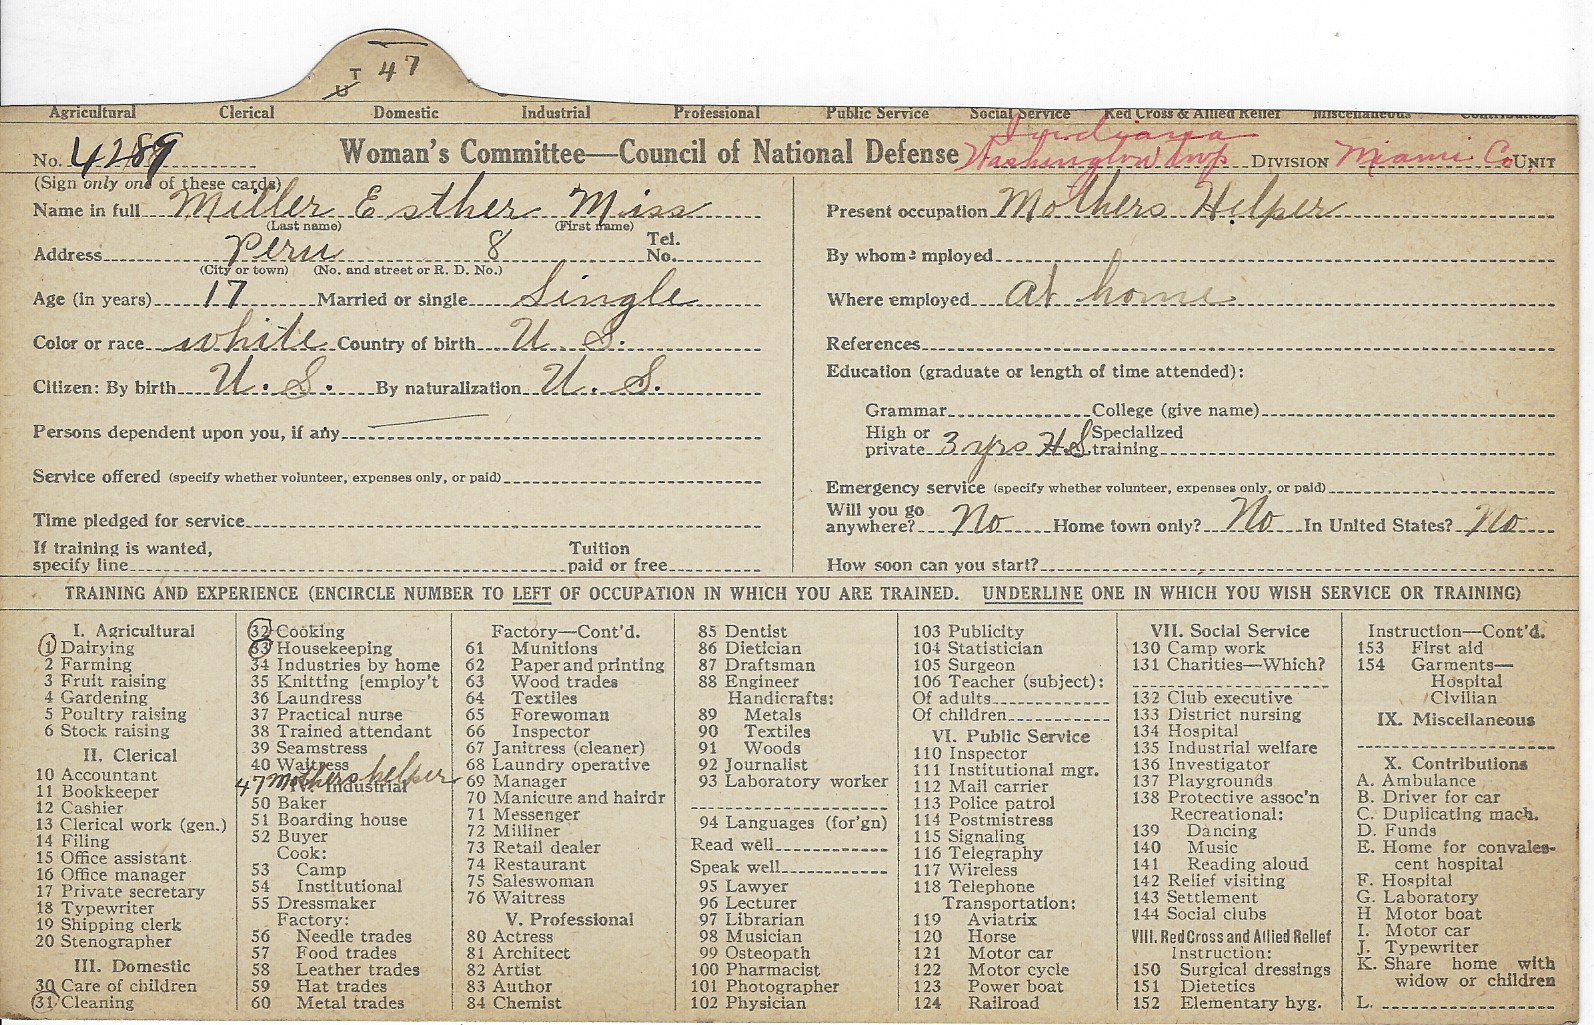 T 47
U
Agricultural Clerical Domestic Industrial Professional Public Service Social Service Red Cross & Allied Relief Miscellaneous Contributions
Indiana
No. 4289 Woman's Committee—Council of National Defense Washington twp DIVISION Miami Co UNIT
(Sign only one of these cards)
Name in full Miller Esther Miss
(Last name) (First name)
Address Peru 8 Tel. No.
(City or town) (No. and street or R. D. No.)
Age (in years) 17 Married or single Single
Color or race white Country of birth U. S.
Citizen: By birth U. S. By naturalization U. S.
Persons dependent upon you, if any
Service offered (specify whether volunteer, expenses only, or paid)
Time pledged for service
If training is wanted,
specify line Tuition paid or free
Present occupation Mothers Helper
By whom employed
Where employed at home
References
Education (graduate or length of time attended):
Grammar College (give name)
High or private 3 yrs H.S. Specialized training
Emergency service (specify whether volunteer, expenses only, or paid)
Will you go anywhere? No Home town only? No In United States? No
How soon can you start?
TRAINING AND EXPERIENCE (ENCIRCLE NUMBER TO LEFT OF OCCUPATION IN WHICH YOU ARE TRAINED. UNDERLINE ONE IN WHICH YOU WISH SERVICE OR TRAINING)
I. Agricultural
1 Dairying
2 Farming
3 Fruit raising
4 Gardening
5 Poultry raising
6 Stock raising
II. Clerical
10 Accountant
11 Bookkeeper
12 Cashier
13 Clerical work (gen.)
14 Filing
15 Office assistant
16 Office manager
17 Private secretary
18 Typewriter
19 Shipping clerk
20 Stenographer
III. Domestic
30 Care of children
31 Cleaning
32 Cooking
33 Housekeeping
34 Industries by home
35 Knitting [employ't
36 Laundress
37 Practical nurse
38 Trained attendant
39 Seamstress
40 Waitress
47 Mothers helper
IV. Industrial
50 Baker
51 Boarding house
52 Buyer
Cook:
53 Camp
54 Institutional
55 Dressmaker
Factory:
56 Needle trades
57 Food trades
58 Leather trades
59 Hat trades
60 Metal trades
Factory—Cont'd.
61 Munitions
62 Paper and printing
63 Wood trades
64 Textiles
65 Forewoman
66 Inspector
67 Janitress (cleaner)
68 Laundry operative
69 Manager
70 Manicure and hairdr
71 Messenger
72 Milliner
73 Retail dealer
74 Restaurant
75 Saleswoman
76 Waitress
V. Professional
80 Actress
81 Architect
82 Artist
83 Author
84 Chemist
85 Dentist
86 Dietician
87 Draftsman
88 Engineer
Handicrafts:
89 Metals
90 Textiles
91 Woods
92 Journalist
93 Laboratory worker
94 Languages (for'gn)
Read well
Speak well
95 Lawyer
96 Lecturer
97 Librarian
98 Musician
99 Osteopath
100 Pharmacist
101 Photographer
102 Physician
103 Publicity
104 Statistician
105 Surgeon
106 Teacher (subject):
Of adults
Of children
VI. Public Service
110 Inspector
111 Institutional mgr.
112 Mail carrier
113 Police patrol
114 Postmistress
115 Signaling
116 Telegraphy
117 Wireless
118 Telephone
Transportation:
119 Aviatrix
120 Horse
121 Motor car
122 Motor cycle
123 Power boat
124 Railroad
VII. Social Service
130 Camp work
131 Charities—Which?
132 Club executive
133 District nursing
134 Hospital
135 Industrial welfare
136 Investigator
137 Playgrounds
138 Protective assoc'n
Recreational:
139 Dancing
140 Music
141 Reading aloud
142 Relief visiting
143 Settlement
144 Social clubs
VIII. Red Cross and Allied Relief
Instruction:
150 Surgical dressings
151 Dietetics
152 Elementary hyg.
Instruction—Cont'd.
153 First aid
154 Garments—
Hospital
Civilian
IX. Miscellaneous
X. Contributions
A. Ambulance
B. Driver for car
C. Duplicating mach.
D. Funds
E. Home for convales-
cent hospital
F. Hospital
G. Laboratory
H Motor boat
I. Motor car
J. Typewriter
K. Share home with
widow or children
L.